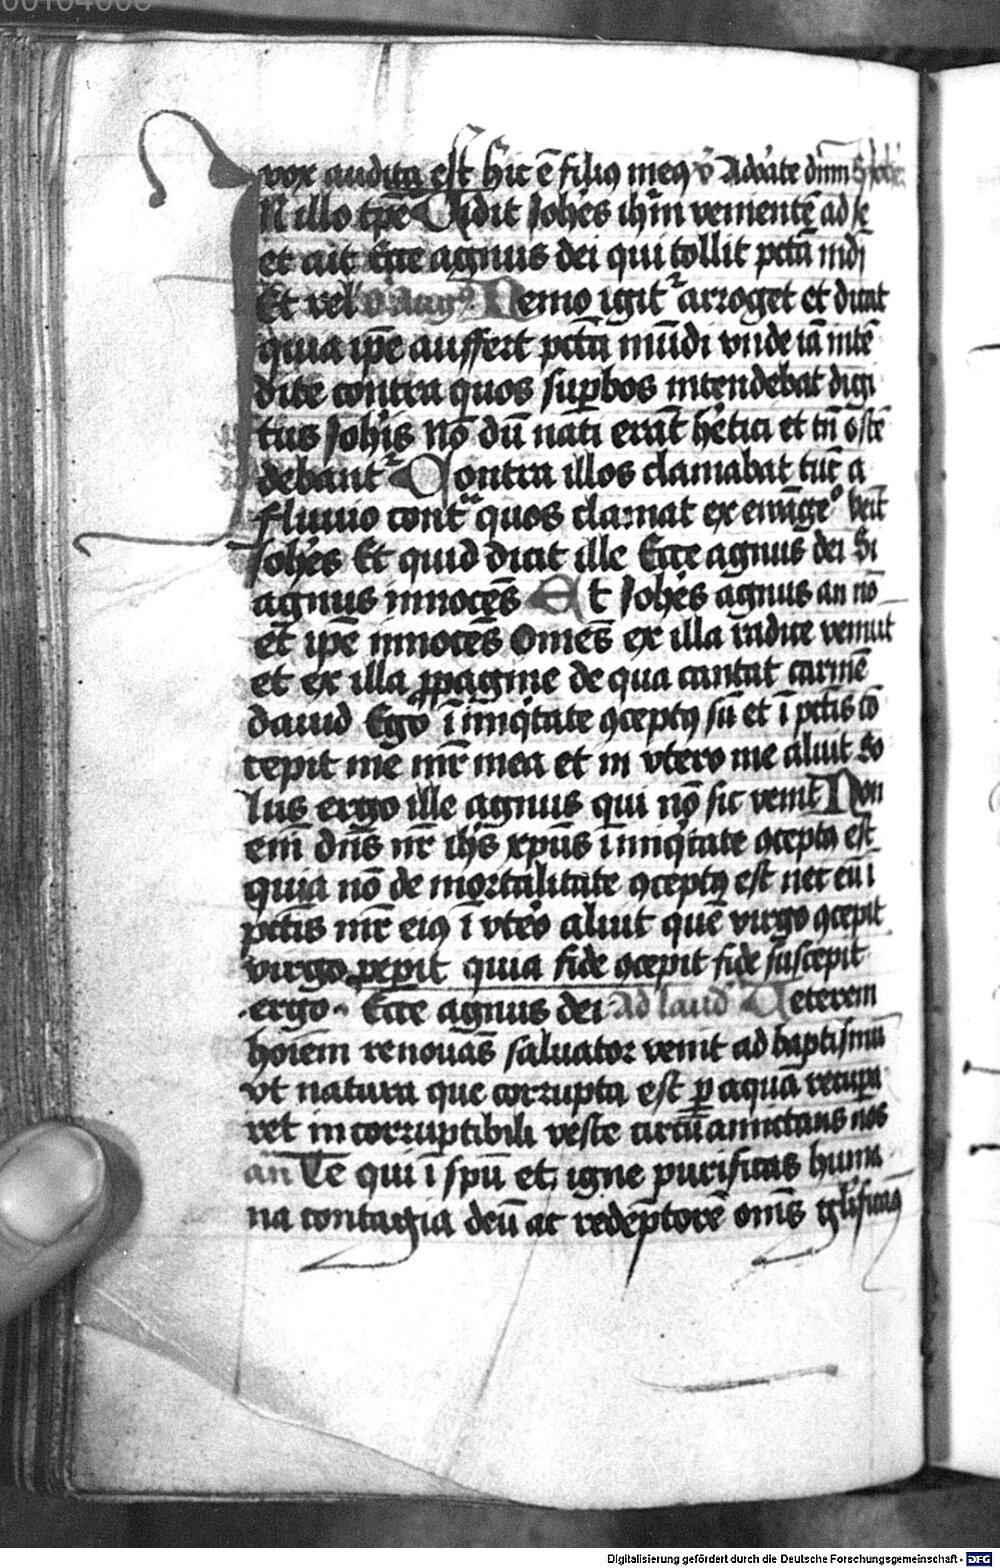 vox audita est hic ē filiꝰ meꝰ v̄ Adorate dnm
In illo tp̄e Vidit Johēs ihm̄ venientē ad se
et ait Ecce agnus dei qui tollit pctā mdi
Et rel Nemo igitᷣ arroget et dicat
quia ip̄e auffert pctā mūdi vnde iā intē
dite contra quos suꝑbos intendebat digi
tus Johīs Nō dū nati erāt hētici et tn̄ ostē
debantᷣ Contra illos clamabat tūc a
fluuio contᷓ quos clamat ex ewāgeᵒ
Johēs Et quid dicit ille Ecce agnus dei Si
agnus innocēs Et Johēs agnus an nō
et ip̄e innocēs Omēs ex illa radice veniūt
et ex illa ꝓpagine de qua cantat carmē
dauid Ego ī inīqtate ꝯceptꝰ sū et ī pctīs cō
cepit me mr̄ mea et in vtero me aluit So
lus ergo ille agnus qui nō sic venit Non
em̄ dn̄s nr̄ ihs xpūs ī inīqtate ꝯceptꝰ est
quia nō de mortalitate ꝯceptꝰ est nec eū ī
pctīs mr̄ eiꝰ ī vteo aluit quē virgo ꝯcepit
virgo peperit quia fide ꝯcepit fide suscepit
ergo Ecce agnus dei Ad laud Veterem
hoiem renouās saluator venit ad baptismū
vt natura que corrupta est ꝑ aquā recupa
ret incorruptibili veste circūamictans nos
an Te qui ī spū et igne purificas huma
na contagia deū ac redēptorē om̄s glificamꝰ